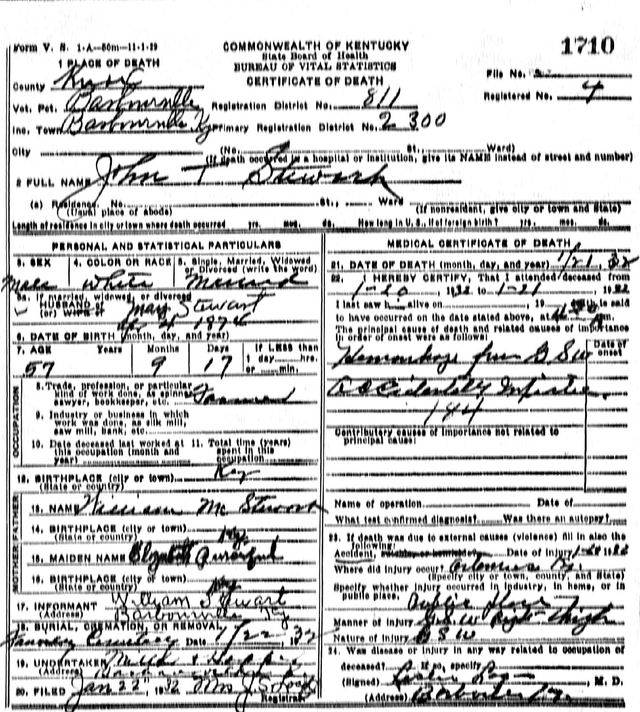 Form V. S. 1-A-50m-11-1-29
COMMONWEALTH OF KENTUCKY
State Board of Health
BUREAU OF VITAL STATISTICS
CERTIFICATE OF DEATH
1710
1 PLACE OF DEATH
County Knox
File No.
Registered No. 4
Vot. Pct. Barbourville Registration District No. 811
Inc. Town Barbourville Ky Primary Registration District No. 2300
City (No. St., Ward)
(If death occurred in a hospital or institution, give its NAME instead of street and number)
2 FULL NAME John T Stewart
(a) Residence. No. St., Ward
(Usual place of abode) (If nonresident, give city or town and State)
Length of residence in city or town where death occurred yrs. mos. ds. How long in U. S., if of foreign birth? yrs. mos. ds.
PERSONAL AND STATISTICAL PARTICULARS
3. SEX 4. COLOR OR RACE 5. Single, Married, Widowed or Divorced (write the word)
Male White Married
5a. If married, widowed, or divorced
HUSBAND of
(or) WIFE of Mary Stewart
6. DATE OF BIRTH (month, day, and year) 4 1874
7. AGE Years Months Days If LESS than 1 day hrs. or min.
57 9 17
OCCUPATION
8. Trade, profession, or particular kind of work done, as spinner, sawyer, bookkeeper, etc.
9. Industry or business in which work was done, as silk mill, saw mill, bank, etc.
10. Date deceased last worked at this occupation (month and year)
11. Total time (years) spent in this occupation
12. BIRTHPLACE (city or town)
(State or country) Ky
FATHER
13. NAME William Mc Stewart
14. BIRTHPLACE (city or town)
(State or country) Ky
MOTHER
15. MAIDEN NAME Elizabeth
16. BIRTHPLACE (city or town)
(State or country) Ky
17. INFORMANT William Stewart
(Address) Barbourville Ky
18. BURIAL, CREMATION, OR REMOVAL
Cemetery Date 1/22 1932
19. UNDERTAKER
(Address)
20. FILED Jan 22 1932 Mrs J.
Registrar
MEDICAL CERTIFICATE OF DEATH
21. DATE OF DEATH (month, day, and year) 1/21 32
22. I HEREBY CERTIFY, That I attended deceased from
1-20, 1932 to 1-21, 1932
I last saw h alive on , 19 death is said
to have occurred on the date stated above, at m.
The principal cause of death and related causes of importance in order of onset were as follows:
Date of onset
Hemorrhage from G S W
Accidentally
184
Contributory causes of importance not related to principal cause:
Name of operation Date of
What test confirmed diagnosis? Was there an autopsy?
23. If death was due to external causes (violence) fill in also the following:
Accident, suicide, or homicide? Date of injury 1-20 1932
Where did injury occur? Ky.
(Specify city or town, county, and State)
Specify whether injury occurred in industry, in home, or in public place.
Public
Manner of injury G.S.W Right thigh
Nature of injury G S W
24. Was disease or injury in any way related to occupation of deceased? If so, specify
(Signed) M. D.
(Address)